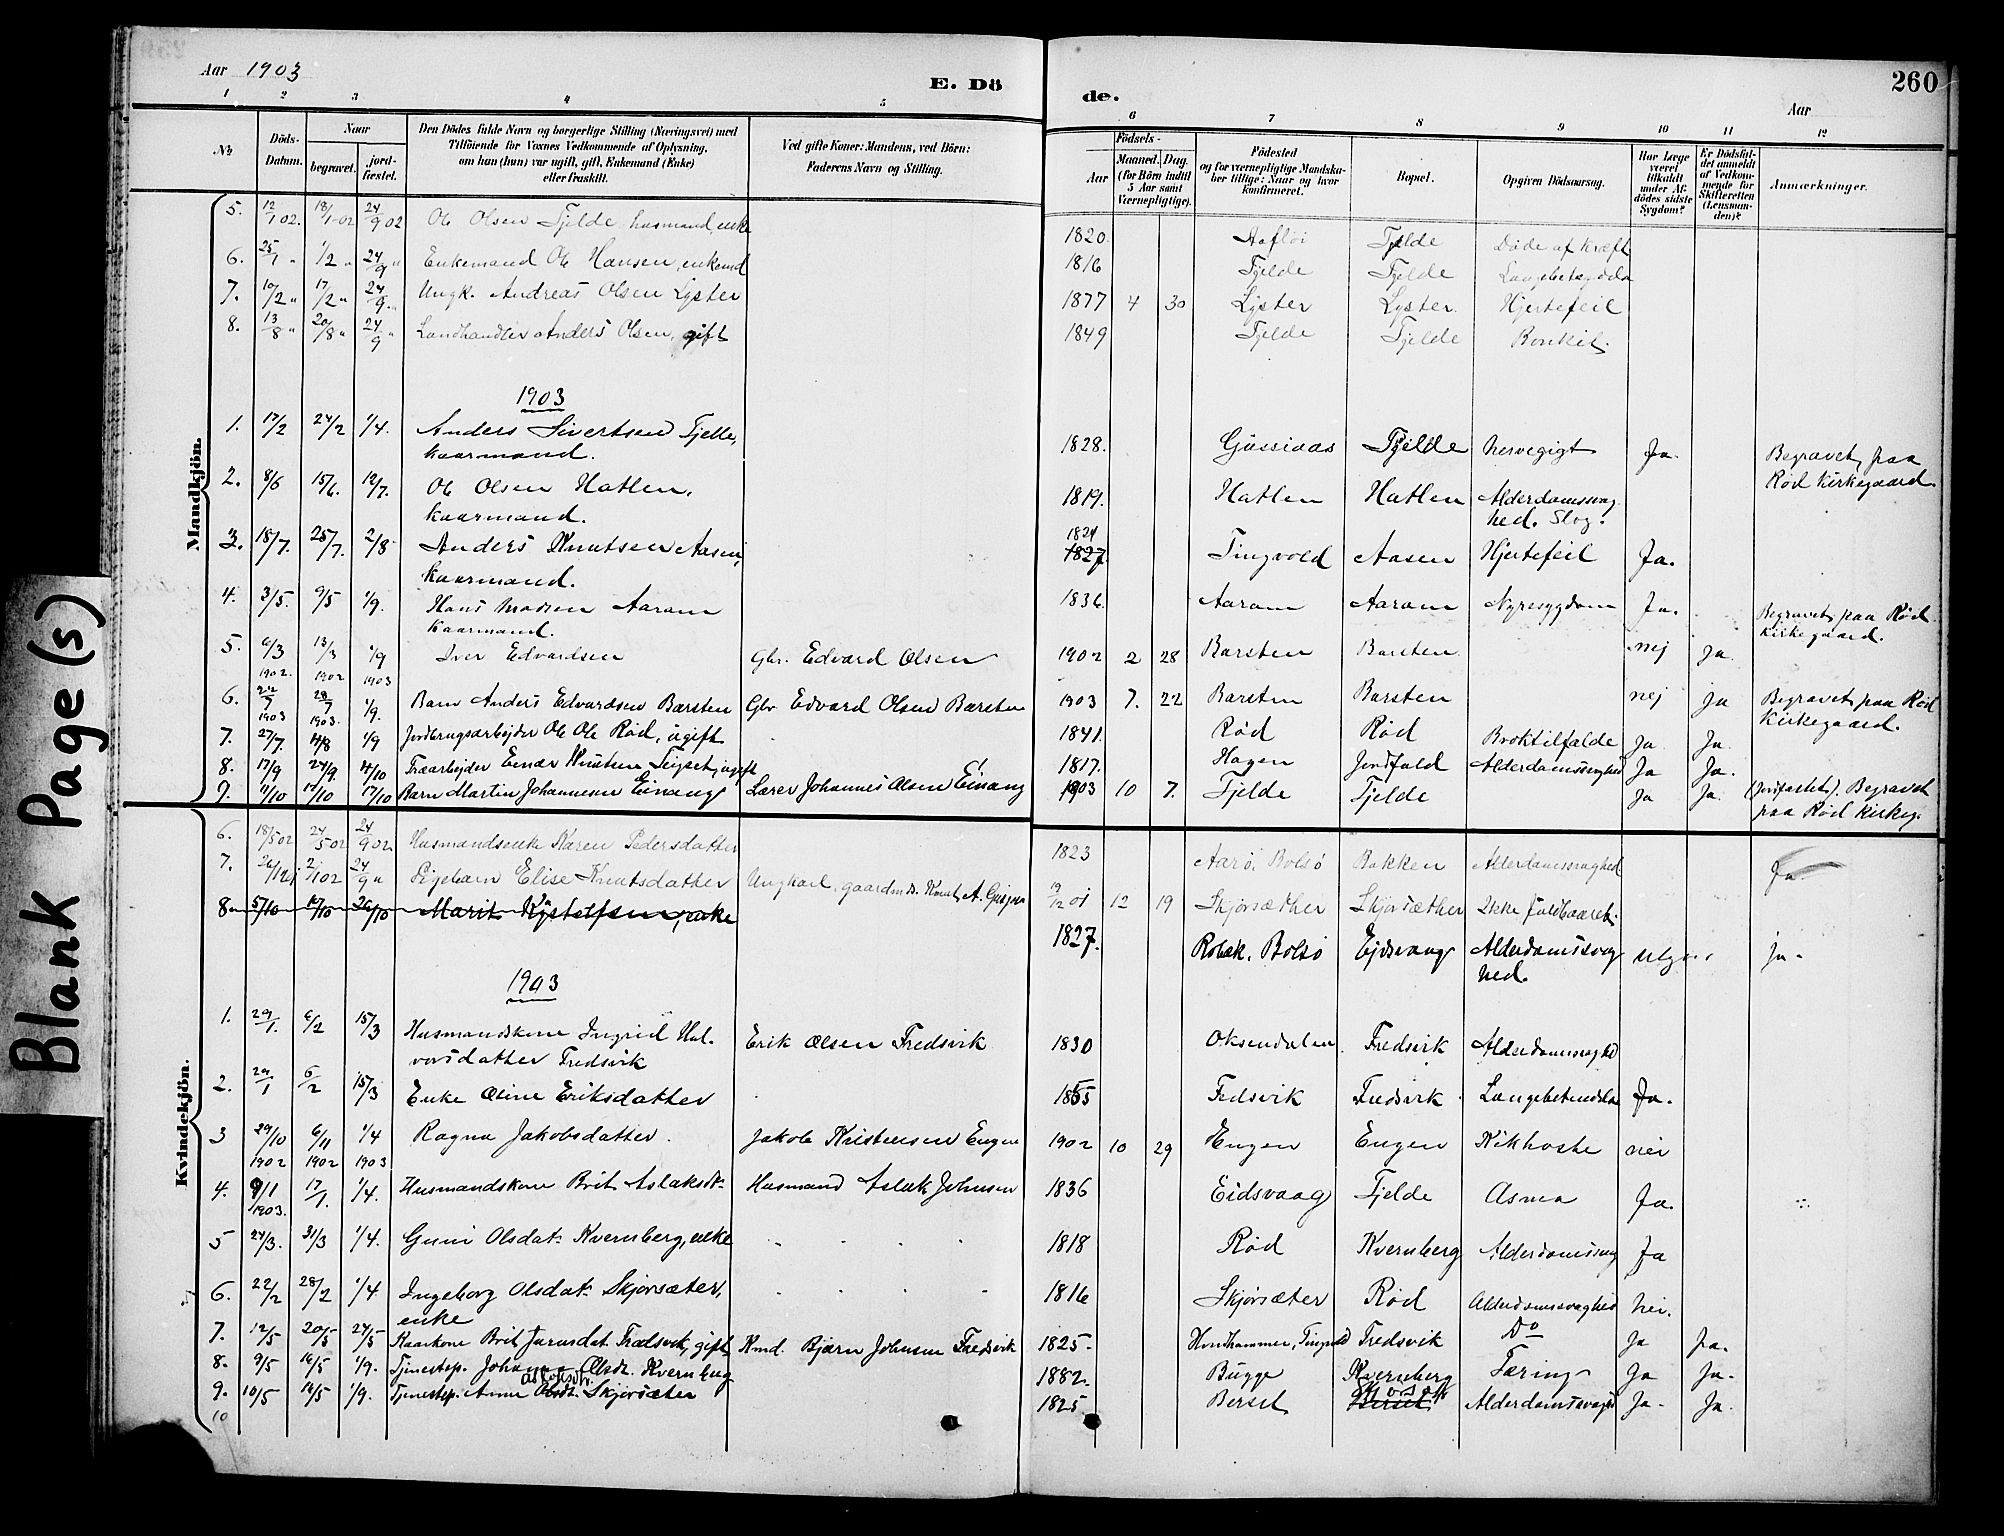 Aar 1903
E. Dö
de.
260
Aar
1 2 3 4 5 6 7 8 9 10 11 12
No
Döds-
Datum.
Naar
begravet.
jord-
fæstet.
Den Dödes fulde Navn og borgerlige Stilling (Næringsvei) med
Tilföiende for Voxnes Vedkommende af Oplysning,
om han (hun) var ugift, gift, Enkemand (Enke)
eller fraskilt.
Ved gifte Koner: Mandens, ved Börn:
Faderens Navn og Stilling.
Födsels-
Aar
Maaned. Dag.
(for Börn indtil
5 Aar samt
Værnepligtige).
Födested
og for værnepligtige Mandska-
ber tillige: Naar og hvor
konfirmeret.
Bopæl.
Opgiven Dödsaarsag.
Har Læge
været
tilkaldt
under Af-
dödes sidste
Sygdom?
Er Dödsfal-
det anmeldt
af Vedkom-
mende for
Skifteretten
(Lensman-
den)?
Anmærkninger.
Mandkjön.
5. 12/1 02. 18/1 02 24/9 02 Ole Olsen Tjelde husmand, enke 1820. Tjelde Døde af Kræft
6. 25/1 " 1/2 " 24/9 " Enkemand Ole Hansen, enkemd 1816 Tjelde Tjelde
7. 10/2 " 17/2 " 24/9 " Ungk. Andreas Olsen Lyster 1877 4 30 Lyster Lyster Hjertefeil
8. 13/8 " 20/8 " 24/9 " Landhandler Anders Olsen, gift 1849 Tjelde Tjelde Bronkit.
1903
1. 17/2 24/2 1/4. Anders Sivertsen Tjelle, 1828. Gussiaas Tjelde Nervegigt Ja. Begravet paa
kaarmand. Rød Kirkegaard.
2. 8/6 15/6. 12/7. Ole Olsen Hatlen, 1819. Hatlen Hatlen Alderdomssvag
kaarmand. hed. Slag.
3. 18/7. 25/7. 2/8 Anders Knutsen Aasen, 1824 1827. Tingvold Aasen Hjertefeil Ja.
kaarmand.
4. 3/5. 9/5 1/9. Hans Madsen Aaram 1836. Aaram Aaram Nyresygdom Ja. Begravet paa Rød
kaarmand. Kirkegaard.
5. 6/3 1902. 13/3 1902 1/9 1903 Iver Edvardsen Gbr. Edvard Olsen 1902 2 28 Barsten Barsten nej Ja.
6. 22/7 1903 28/7 1903. 1/9. Barn Anders Edvardsen Barsten Gbr Edvard Olsen Barsten 1903 7. 22 Barsten Barsten nej Ja Begravet paa Rød
Kirkegaard.
7. 27/7. 4/8 1/9 Jordbrugsarbejder Ole Ols. Rød, ugift 1841. Rød Rød Broktilfælde Ja Ja.
8. 17/9 24/9. 4/10 Træarbejder Einar Knutsen, ugift 1817. Hagen Jordfald Alderdomssvaghed Ja Ja.
9. 7/10 17/10 Barn Martin Johannesen Einang Lærer Johannes Olsen Einang 1903 10 7. Tjelde Tjelde Ja Ja. (Jordfæstet). Begravet
paa Rød Kirkeg.
Kvindekjön.
6. 18/5 02 24/5 02 24/9 02 Husmandsenke Karen Pedersdatter 1823 Aarø, Bolsø Bakken Alderdomssvaghed Ja.
7. 24/9 " Pigebarn Elise Knutsdatter Ungkarl, gaardmds. Knut A. 19/12 01 12 19 Skjørsæther Skjørsæther Ikke fuldbaaret.
8. 5/10 12/10 26/10 Marit enke 1827. Bolsø Eidsvaag Alderdomssvag
hed. Ja.
1903
1. 29/1. 6/2 15/3 Husmandskone Ingrid Hal- Erik Olsen Fredsvik 1830 Øksendalen Fredsvik Alderdomssvaghd
vorsdatter Fredsvik
2. 29/1 6/2 15/3 Enke Oline Eriksdatter 1855 Fredsvik Fredsvik Lungebetændelse Ja.
3 29/10 1902 6/11 1902 1/4 1903 Ragna Jakobsdatter. Jakob Kristensen Engen 1902 10 29 Engen Engen Kikhoste nei
4. 9/1 1903. 17/1. 1/4. Husmandskone Brit Aslaksdt. Husmand Aslak Johnsen 1836 Eidsvaag Tjelde Asma Ja.
5 24/3. 31/3 1/4. Guni Olsdat. Kvernberg, enke 1818 Rød Kvernberg Alderdomssvag Ja
6. 22/2 28/2 1/4 Ingeborg Olsdat. Skjørsæter, 1816 Skjørsæter Rød Alderdomssvaghed nei.
enke
7. 12/5 20/5 24/5 Kaarkone Brit Fredsvik, gift Kmd. Bjørn Johnsen Fredsvik 1825. Tingvold Fredsvik Do Ja Ja.
8. 9/5 16/5 1/9. Tjenestep. Johanna Olsdt. Kvernberg 1882. Bugge Kvernberg Tæring Ja Ja.
9. 10/5 16/5 1/9. Tjenestep. Anne Olsdt. Skjørsæter 1825 Berset Berset Alderdomssvaghed Ja. Ja.
10
Blank Page(s)